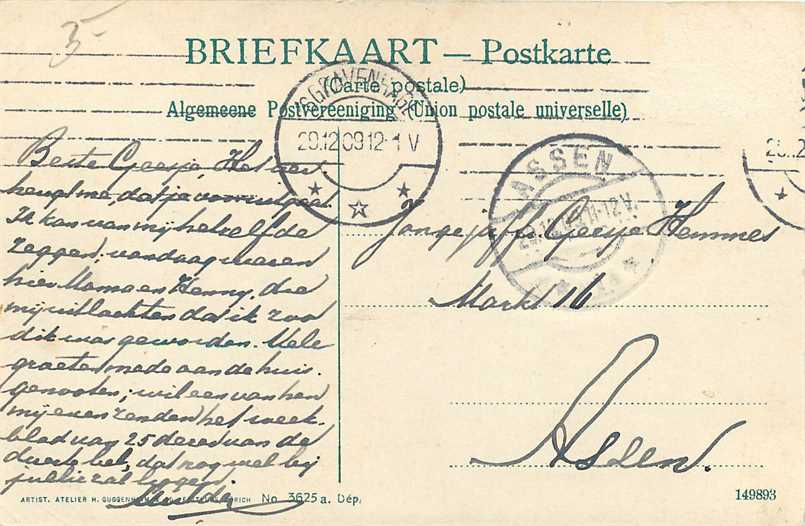 3-
BRIEFKAART — Postkarte
(Carte postale)
Algemeene Postvereeniging (Union postale universelle)
'SGRAVENHAGE
29.12 09 12-1 V
ASSEN
11-12 V.
Beste Geesje Het ver
heugt me, dat je vooruitgaat
Ik kan van mij hetzelfde
zeggen; vandaag waren
hier Mama en Henny, die
mij uitlachten dat ik zoo
dik was geworden. Vele
groeten mede aan de huis-
genooten; wil een van hen
mij even zenden het week-
blad van 25 dezer van de
dat nog wel bij
jullie zal liggen.
Jongejuff. Geesje Hemmes
Markt 16
Assen.
ARTIST. ATELIER H. GUGGENHEIM & CO., EDITEURS, ZÜRICH No. 3625 a. Dép.
149893